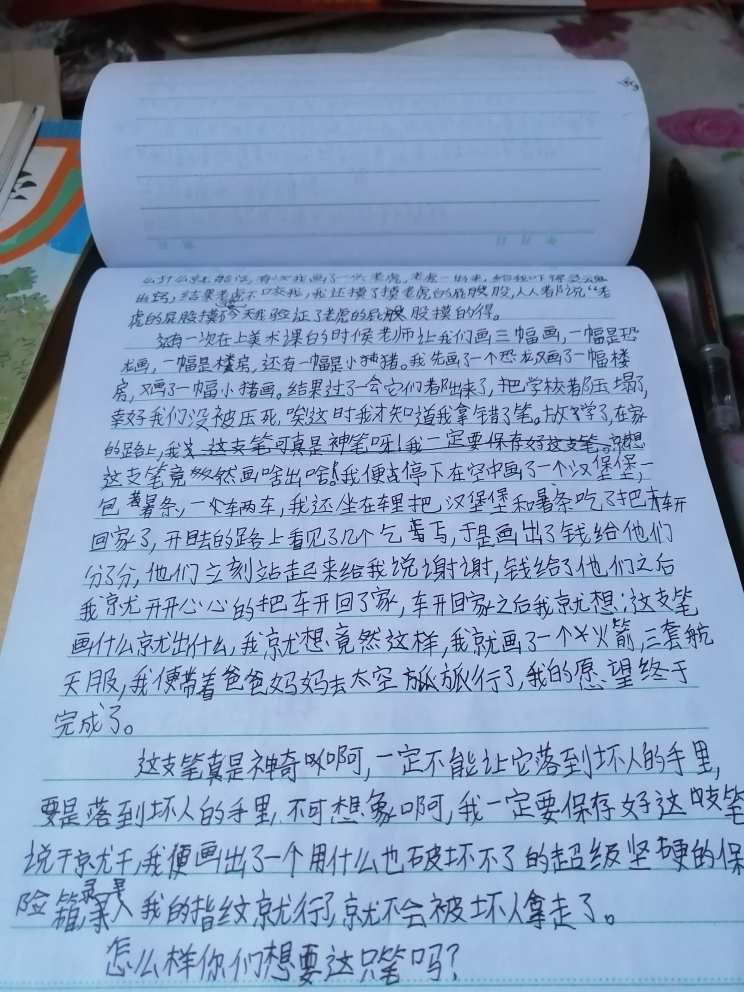 么打么就能活，有一次我画了一只老虎，老虎一出来，给我吓得灵魂
出窍，结果老虎不咬我，我还摸了摸老虎的屁股，人人都说“老
虎的屁股摸不得”今天我验证了老虎的屁股摸的得。
还有一次在上美术课的时候老师让我们画三幅画，一幅是恐
龙画，一幅是楼房，还有一幅是小猪。我先画了一个恐龙又画了一幅楼
房，又画了一幅小猪画。结果过了一会它们都出来了，把学校都压塌了，
幸好我们没被压死，唉这时我才知道我拿错了笔。放学了，在家
的路上，我想
这支笔竟然画啥出啥！我便停下在空中画了一个汉堡堡，一
包薯条，一火车两车，我还坐在车里把汉堡堡和薯条吃了把车开
回家了，开回去的路上看见了几个乞丐，于是画出了钱给他们
分了分，他们立刻站起来给我说谢谢，钱给了他们之后
我就开开心心的把车开回了家，车开回家之后我就想：这支笔
画什么就出什么，我就想竟然这样，我就画了一个火箭，三套航
天服，我便带着爸爸妈妈去太空旅行了，我的愿望终于
完成了。
这支笔真是神奇啊，一定不能让它落到坏人的手里，
要是落到坏人的手里，不可想象啊，我一定要保存好这吱笔
说干就干，我便画出了一个用什么也破坏不了的超级坚硬的保
险箱，录入我的指纹就行了，就不会被坏人拿走了。
怎么样你们想要这只笔吗？